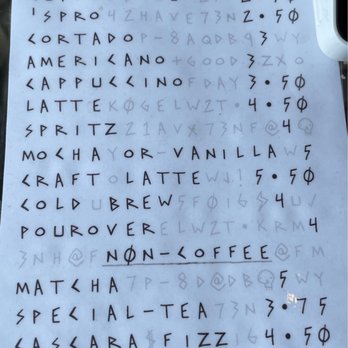 'SPRO 42HAVE73N2•50
CORTADO P-8AQDB93WY
AMERICANO+GOOD3ZXO
CAPPUCCINOFDAY3•50
LATTEK0GELWZT•4•50
SPRITZ21AVX73NF@4
MOCHAYOR-VANILLAW5
CRAFTOLATTEWW!5•50
COLDUBREW5F0I6$4UV
POUROVERELWZT•KRM4
3NH@FNØN-COFFEE@FM
MATCHA7P-8D@DB 5WY
SPECIAL-TEA73N3•75
CASCARA$FIZZ164•50